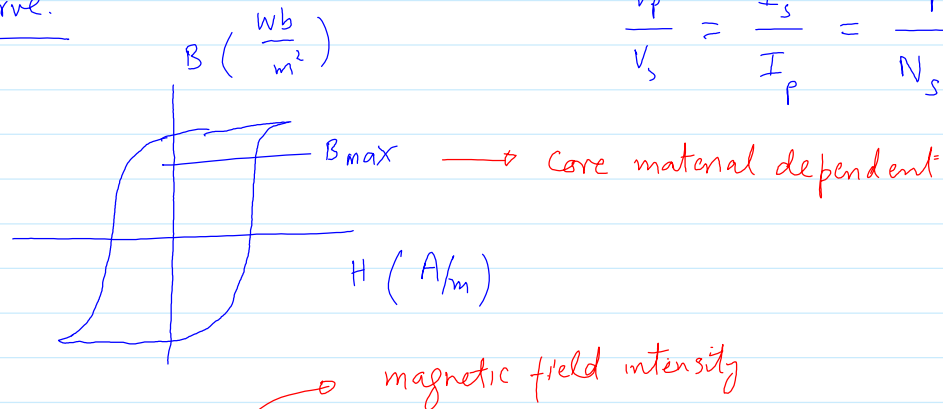 B ( Wb / m² )
Vp / Vs = Is / Ip = / Ns
B max → core material dependent
H ( A/m )
magnetic field intensity